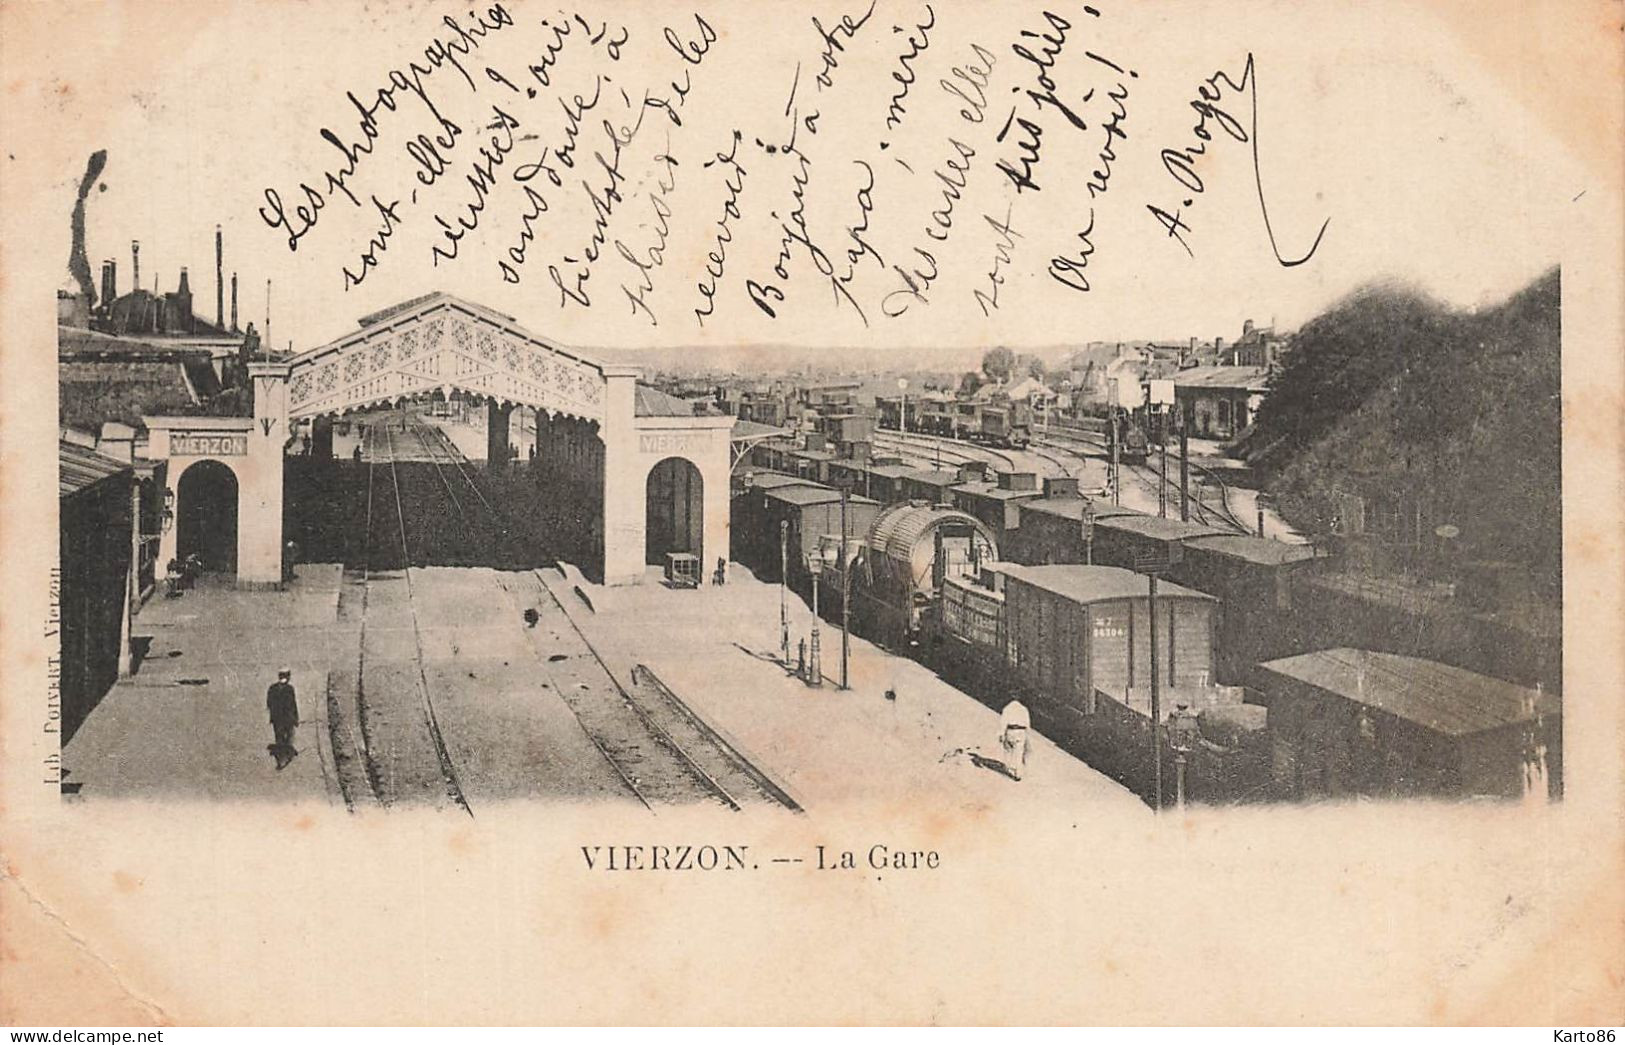 Les photographies
sont-elles
réussies? oui,
sans doute. à
bientôt le
plaisir de les
recevoir.
Bonjour à votre
papa, merci
des cartes elles
sont très jolies,
Au revoir!
A. Roger
VIERZON
VIERZON
Lib. POIVERT, Vierzon
VIERZON. -- La Gare
Karto86